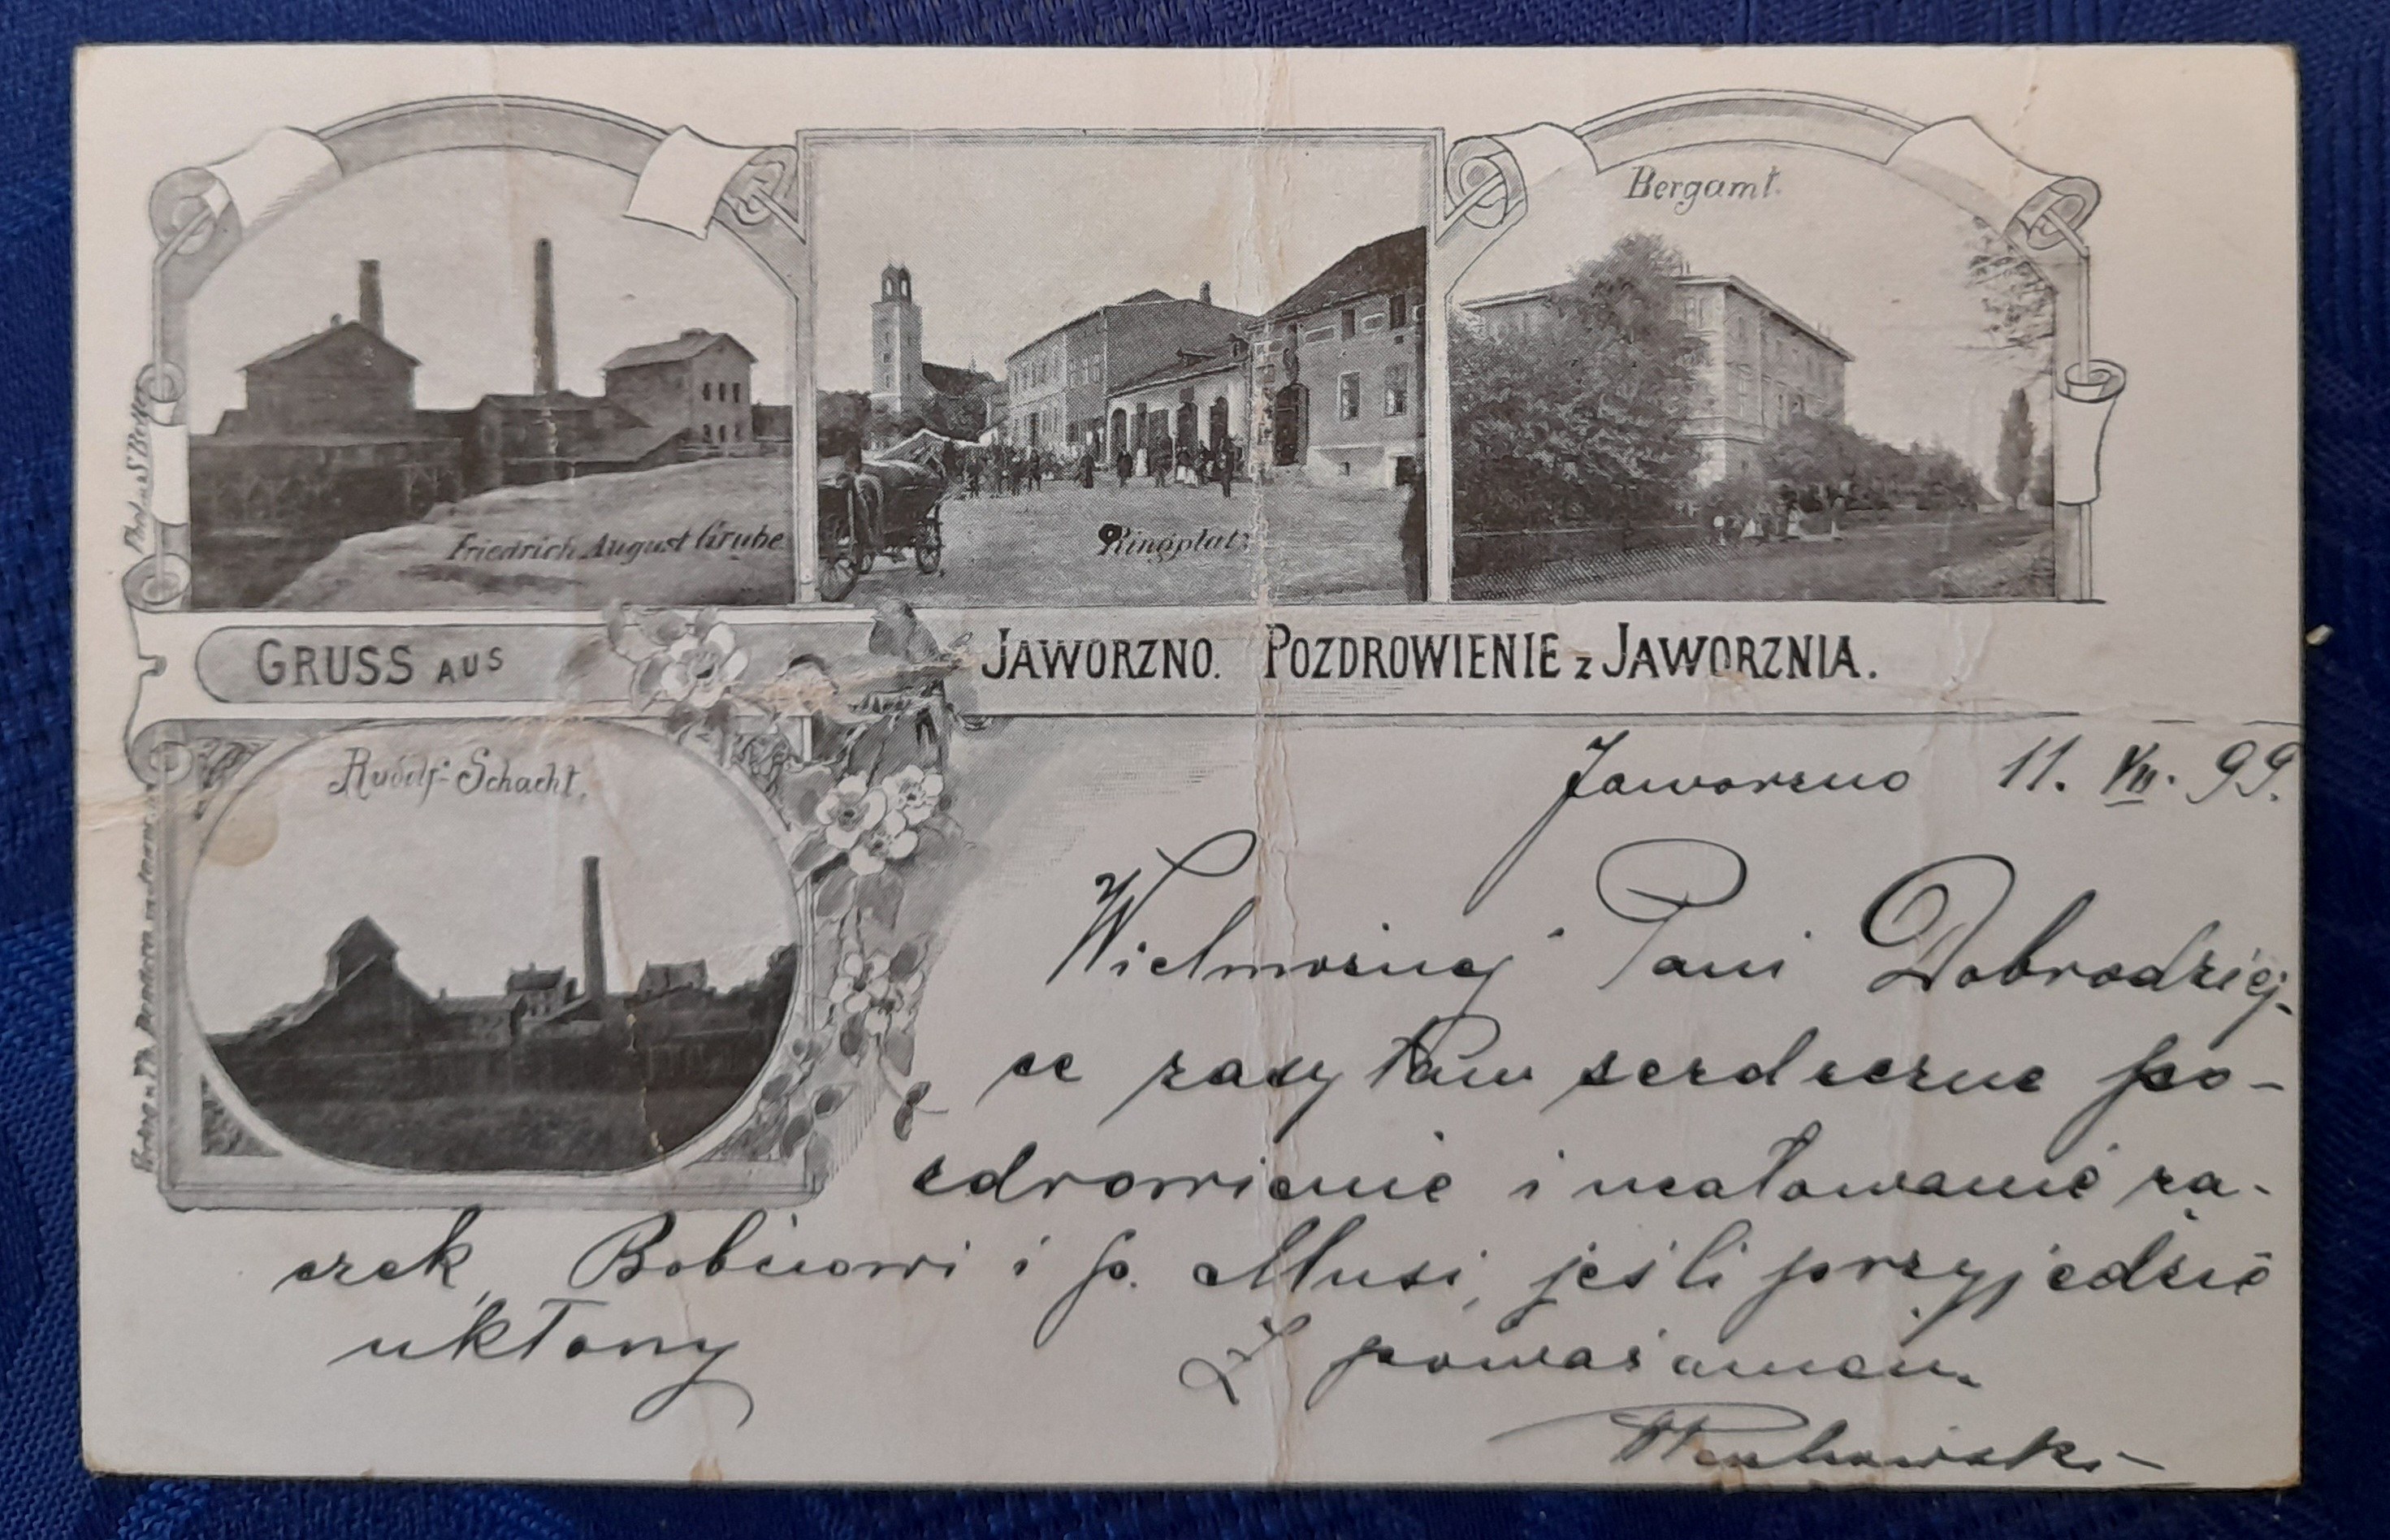 Bergamt.
Friedrich August Grube
Ringplatz
GRUSS AUS JAWORZNO. POZDROWIENIE z JAWORZNIA.
Rudolf-Schacht.
Jaworzno 11. VII. 99.
Wielmożnej Pani Dobrodziej-
ce zasyłam serdeczne po-
zdrowienie i ucałowanie rą-
czek, Bobciowi i p. Musi, jeśli przyjedzie
ukłony
Z poważaniem